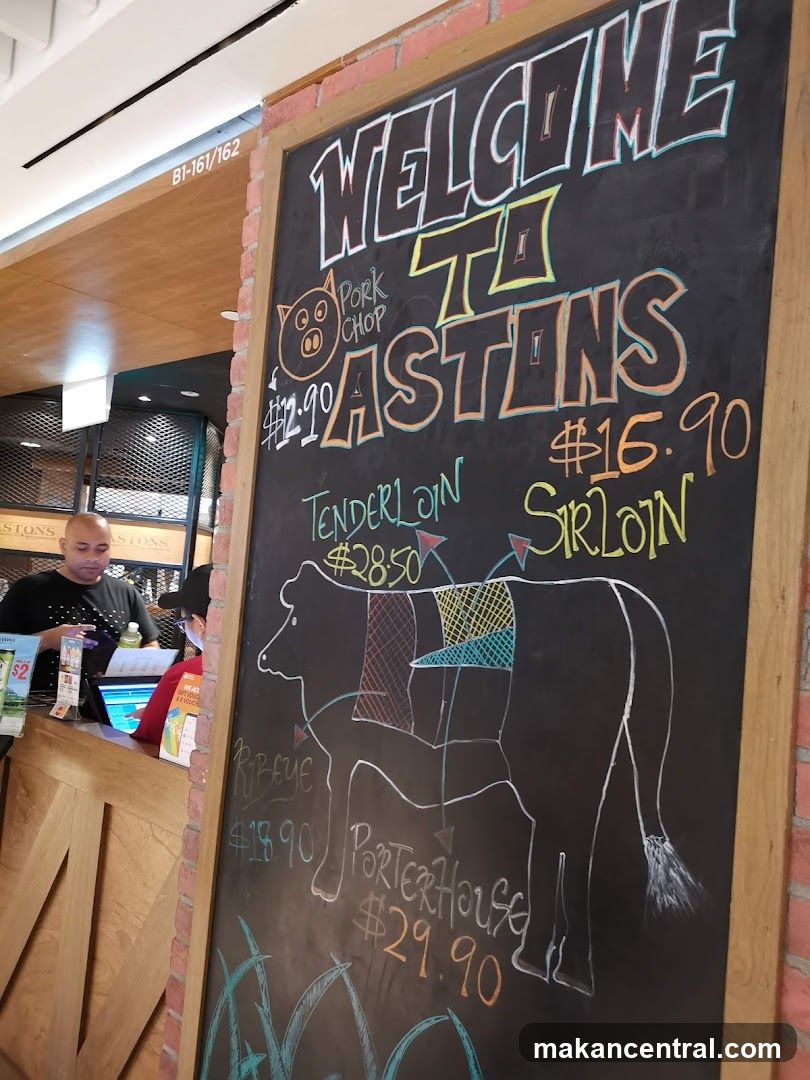 B1-161/162
WELCOME
TO
ASTONS
PORK
CHOP
$12.90
$16.90
TENDERLOIN
$28.50
SIRLOIN
RIBEYE
$18.90
PORTERHOUSE
$29.90
ASTONS
ASTONS
$2
makancentral.com